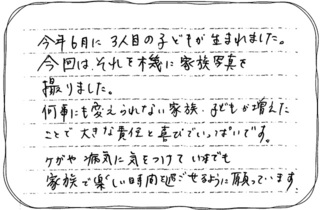 今年6月に3人目の子どもが生まれました。
今回は、それを機に家族写真を
撮りました。
何事にも変えられない家族・子どもが増えた
ことで大きな責任と喜びでいっぱいです。
ケガや病気に気をつけていつまでも
家族で楽しい時間を過ごせるように願っています。